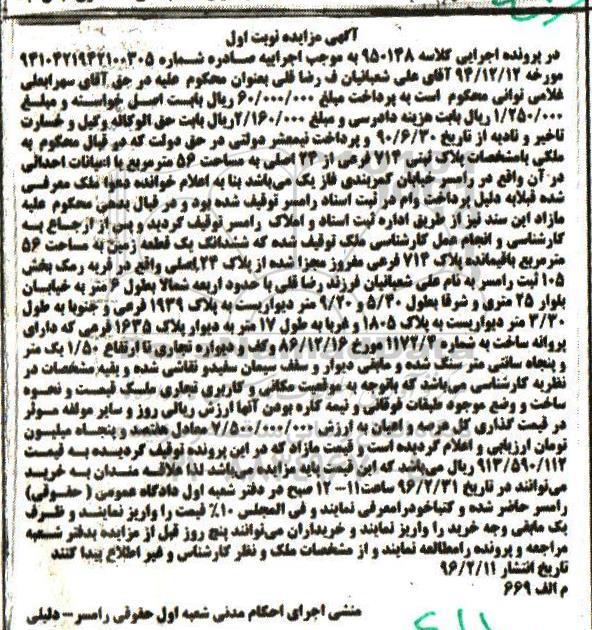 آگهی مزایده نوبت اول
در پرونده اجرایی کلاسه ۹۵۰۱۳۸ به موجب اجراییه صادره شماره ۹۴۱۰۴۲۱۹۴۲۱۰۰۳۰۵
مورخه ۹۴/۱۲/۱۲ آقای علی شعبانیان ف رضا قلی بعنوان محکوم علیه در حق آقای سهرابعلی
غلامی توانی محکوم است به پرداخت مبلغ ۶۰/۰۰۰/۰۰۰ ریال بابت اصل خواسته و مبلغ
۱/۲۵۰/۰۰۰ ریال بابت هزینه دادرسی و مبلغ ۲/۱۶۰/۰۰۰ریال بابت حق الوکاله وکیل و خسارت
تاخیر و تادیه از تاریخ ۹۰/۶/۳۰ و پرداخت نیمعشر دولتی در حق دولت که در قبال محکوم به
ملکی بامشخصات پلاک ثبتی ۷۱۴ فرعی از ۲۴ اصلی به مساحت ۵۶ مترمربع با اعیانات احداثی
در آن واقع در رامسر خیابان کمربندی فاز یک می‌باشد بنا به اعلام خوانده دعوا ملک معرفی
شده قبلا به دلیل پرداخت وام در ثبت اسناد رامسر توقیف شده بود و در قبال بدهی محکوم علیه
مازاد این سند نیز از طریق اداره ثبت اسناد و املاک رامسر توقیف گردید و پس از ارجاع به
کارشناسی و انجام عمل کارشناسی ملک توقیف شده که ششدانگ یک قطعه زمین به مساحت ۵۶
مترمربع باقیمانده پلاک ۷۱۴ فرعی مفروز مجزا شده از پلاک ۲۴ اصلی واقع در قریه رمک بخش
۱۰۵ ثبت رامسر به نام علی شعبانیان فرزند رضا قلی با حدود اربعه شمالا بطول ۶ متر به خیابان
بلوار ۲۵ متری و شرقا بطول ۵/۴۰ و ۹/۲۰ متر دیواریست به پلاک ۱۹۳۹ فرعی و جنوبا به طول
۳/۳۰ متر دیواریست به پلاک ۱۸۰۵ و غربا به طول ۱۷ متر به دیوار پلاک ۱۶۳۵ فرعی که دارای
پروانه ساخت به شماره ۱۱۷۲/۳ مورخ ۸۶/۱۲/۱۶ وکف و دیواره تجاری تا ارتفاع ۱/۵۰ یک متر
و پنجاه سانتی متر سنگ شده و مابقی دیوار و سقف سیمان سفیدو نقاشی شده و بقیه مشخصات در
نظریه کارشناسی می‌باشد که باتوجه به موقعیت مکانی و کاربری تجاری ریسک قیمت و نحوه
ساخت و وضع موجود طبقات فوقانی و نیمه کاره بودن آنها ارزش ریالی روز و سایر مولفه موثر
در قیمت گذاری کل عرصه و اعیان به ارزش ۷/۵۰۰/۰۰۰/۰۰۰ معادل هفتصد و پنجاه میلیون
تومان ارزیابی و اعلام گردیده است و قیمت مازاد که در این پرونده توقیف گردیده به قیمت
۹۱۳/۵۹۰/۱۱۲ ریال می‌باشد که این قیمت پایه مزایده می‌باشد لذا علاقه مندان به خرید
می‌توانند در تاریخ ۹۶/۲/۳۱ ساعت۱۱- ۱۲ صبح در دفتر شعبه اول دادگاه عمومی ( حقوقی)
رامسر حاضر شده و کتباخودرامعرفی نمایند و فی المجلس ۱۰٪ قیمت را واریز نمایند و ظرف
یک مابقی وجه خرید را واریز نمایند و خریداران می‌توانند پنج روز قبل از مزایده بدفتر شعبه
مراجعه و پرونده رامطالعه نمایند و از مشخصات ملک و نظر کارشناس و غیر اطلاع پیدا کنند
تاریخ انتشار ۹۶/۲/۱۱
م الف ۶۶۹
منشی اجرای احکام مدنی شعبه اول حقوقی رامسر – دلیلی